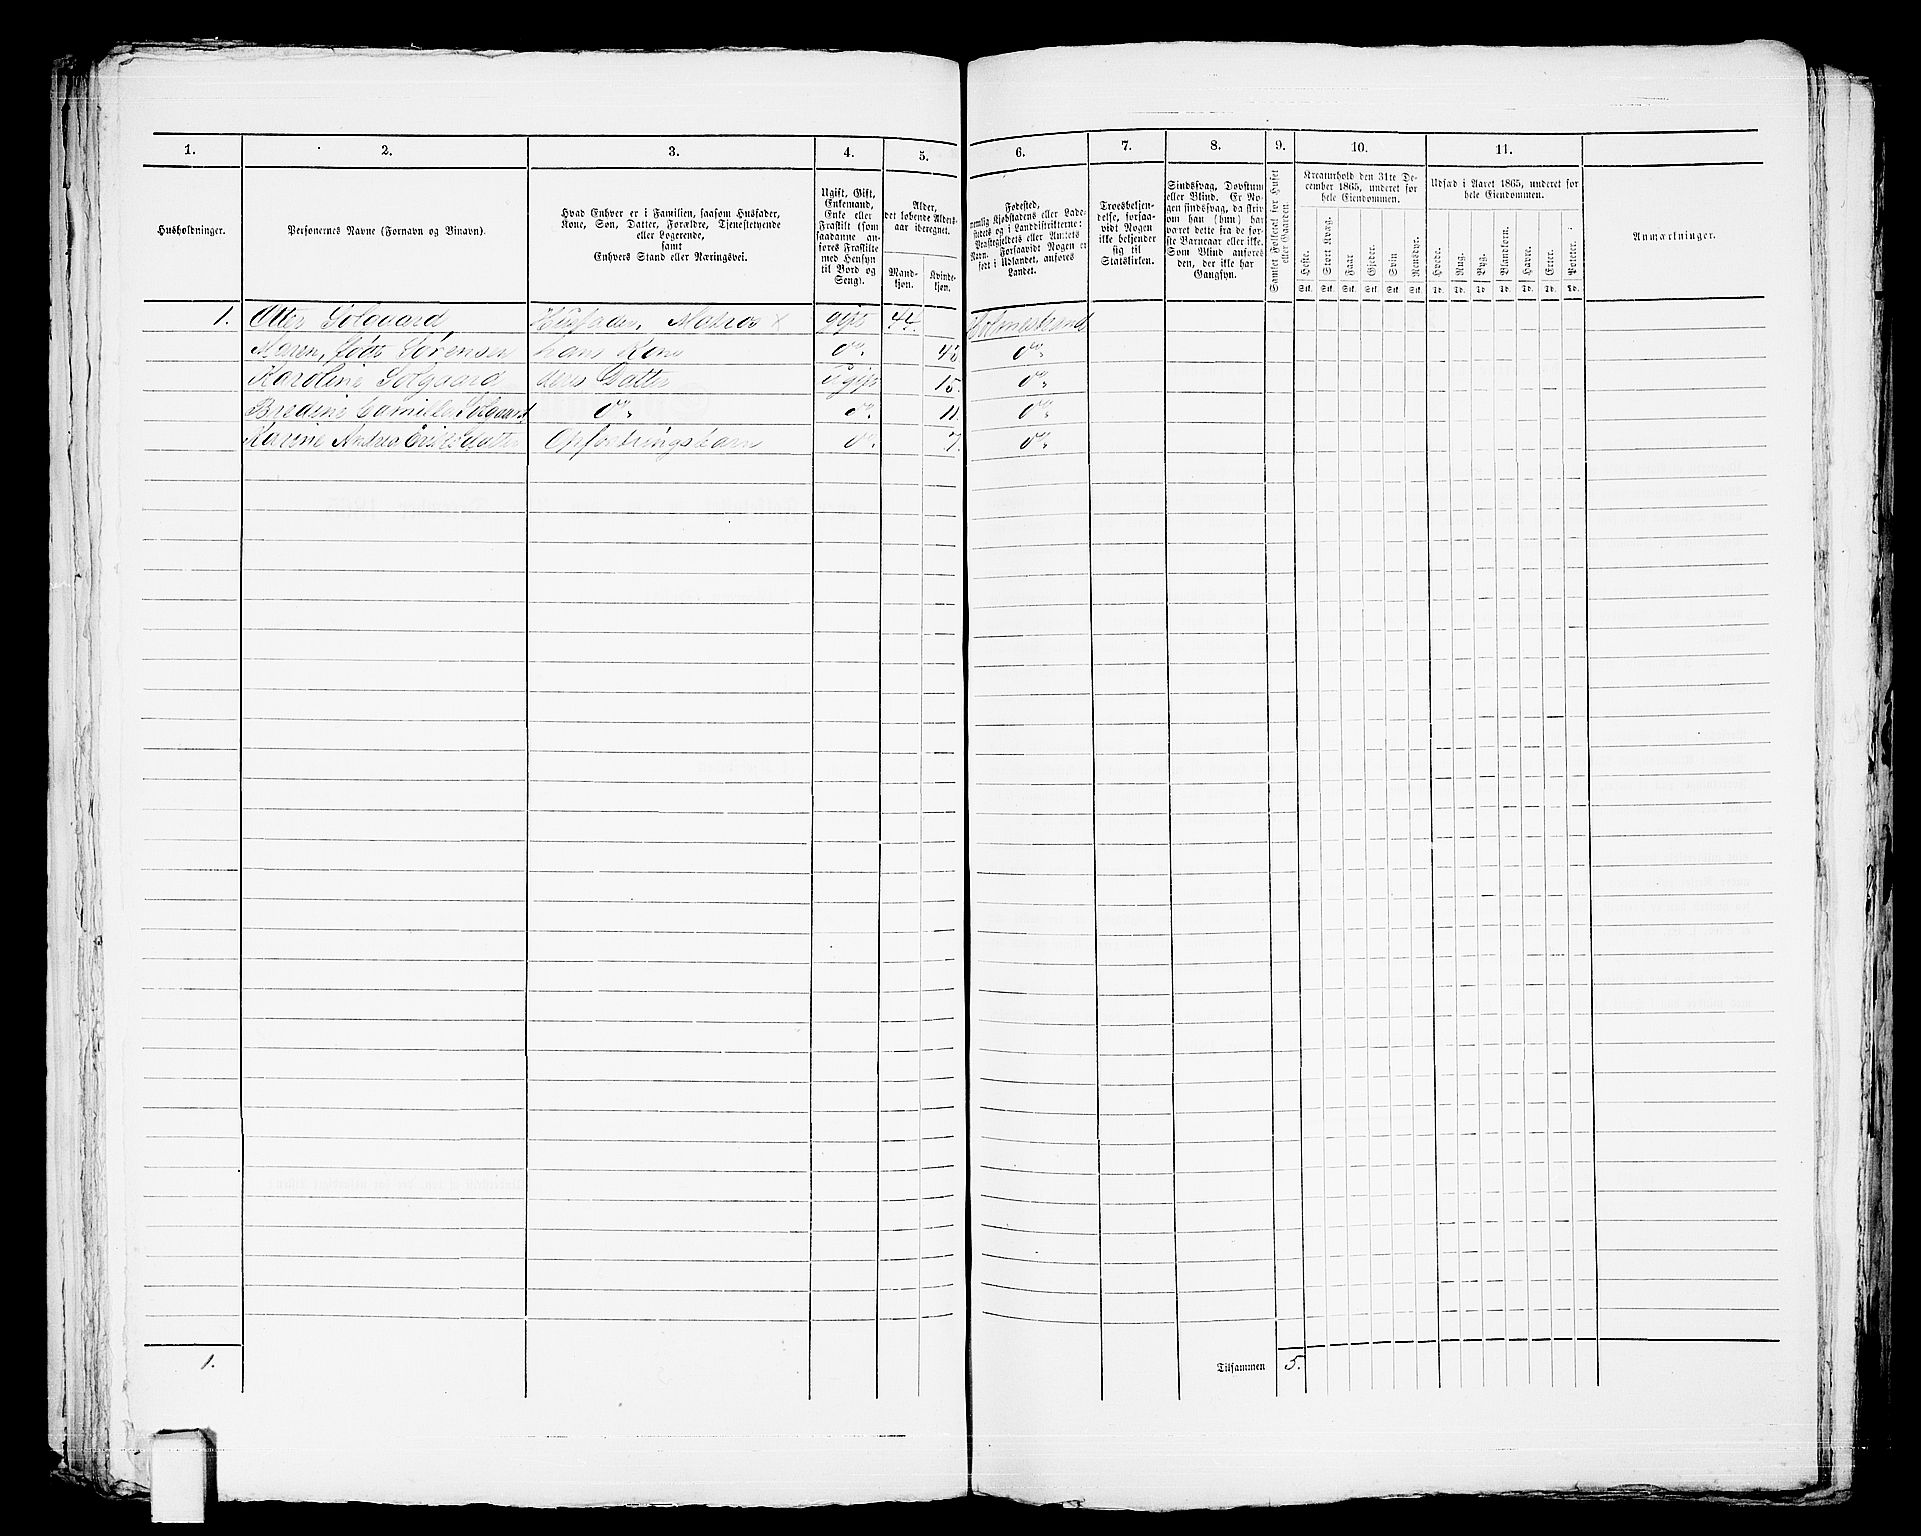 1. 2. 3. 4. 5. 6. 7. 8. 9. 10. 11.
Husholdninger.
Personernes Navne (Fornavn og Binavn).
Hvad Enhver er i Familien, saasom Husfader,
Kone, Søn, Datter, Forældre, Tjenestetyende
eller Logerende,
samt
Enhvers Stand eller Næringsvei.
Ugift, Gift,
Enkemand,
Enke eller
Fraskilt (som
saadanne an-
føres Fraskilte
med Hensyn
til Bord og
Seng).
Alder,
det løbende Alders-
aar iberegnet.
Mand-
kjøn.
Kvinde-
kjøn.
Fødested,
nemlig Kjøbstadens eller Lade-
stedets og i Landdistrikterne:
Præstegjeldets eller Amtets
Navn. Forsaavidt Nogen er
født i Udlandet, anføres
Landet.
Troesbekjen-
delse, forsaa-
vidt Nogen
ikke bekjender
sig til
Statskirken.
Sindssvag, Døvstum
eller Blind. Er No-
gen sindssvag, da skriv
om han (hun) har
været dette fra de før-
ste Barneaar eller ikke.
Som Blind anføres
den, der ikke har
Gangsyn.
Samlet Folketal for Huset
eller Gaarden.
Kreaturhold den 31te De-
cember 1865, underet for
hele Eiendommen.
Heste. Stort Kvæg. Faar Gjeder. Svin Rensdyr.
Stk. Stk. Stk. Stk. Stk. Stk.
Udsæd i Aaret 1865, underet for
hele Eiendommen.
Hvede. Rug. Byg. Blandkorn. Havre. Erter. Poteter.
Td. Td. Td Td. Td. Td. Td.
Anmærkninger.
1. Otter Solgaard Husfader, Matros x gift 44. Holmestrand
Maren, født Sørensen hans Kone do. do.
Karoline Solgaard deres Datter ugift 15. do.
Bredine Camilla Solgaard do. do. 11. do.
Karine Andrea Eriksdatter Opfostringsbarn do. 7. do.
1. Tilsammen 5.